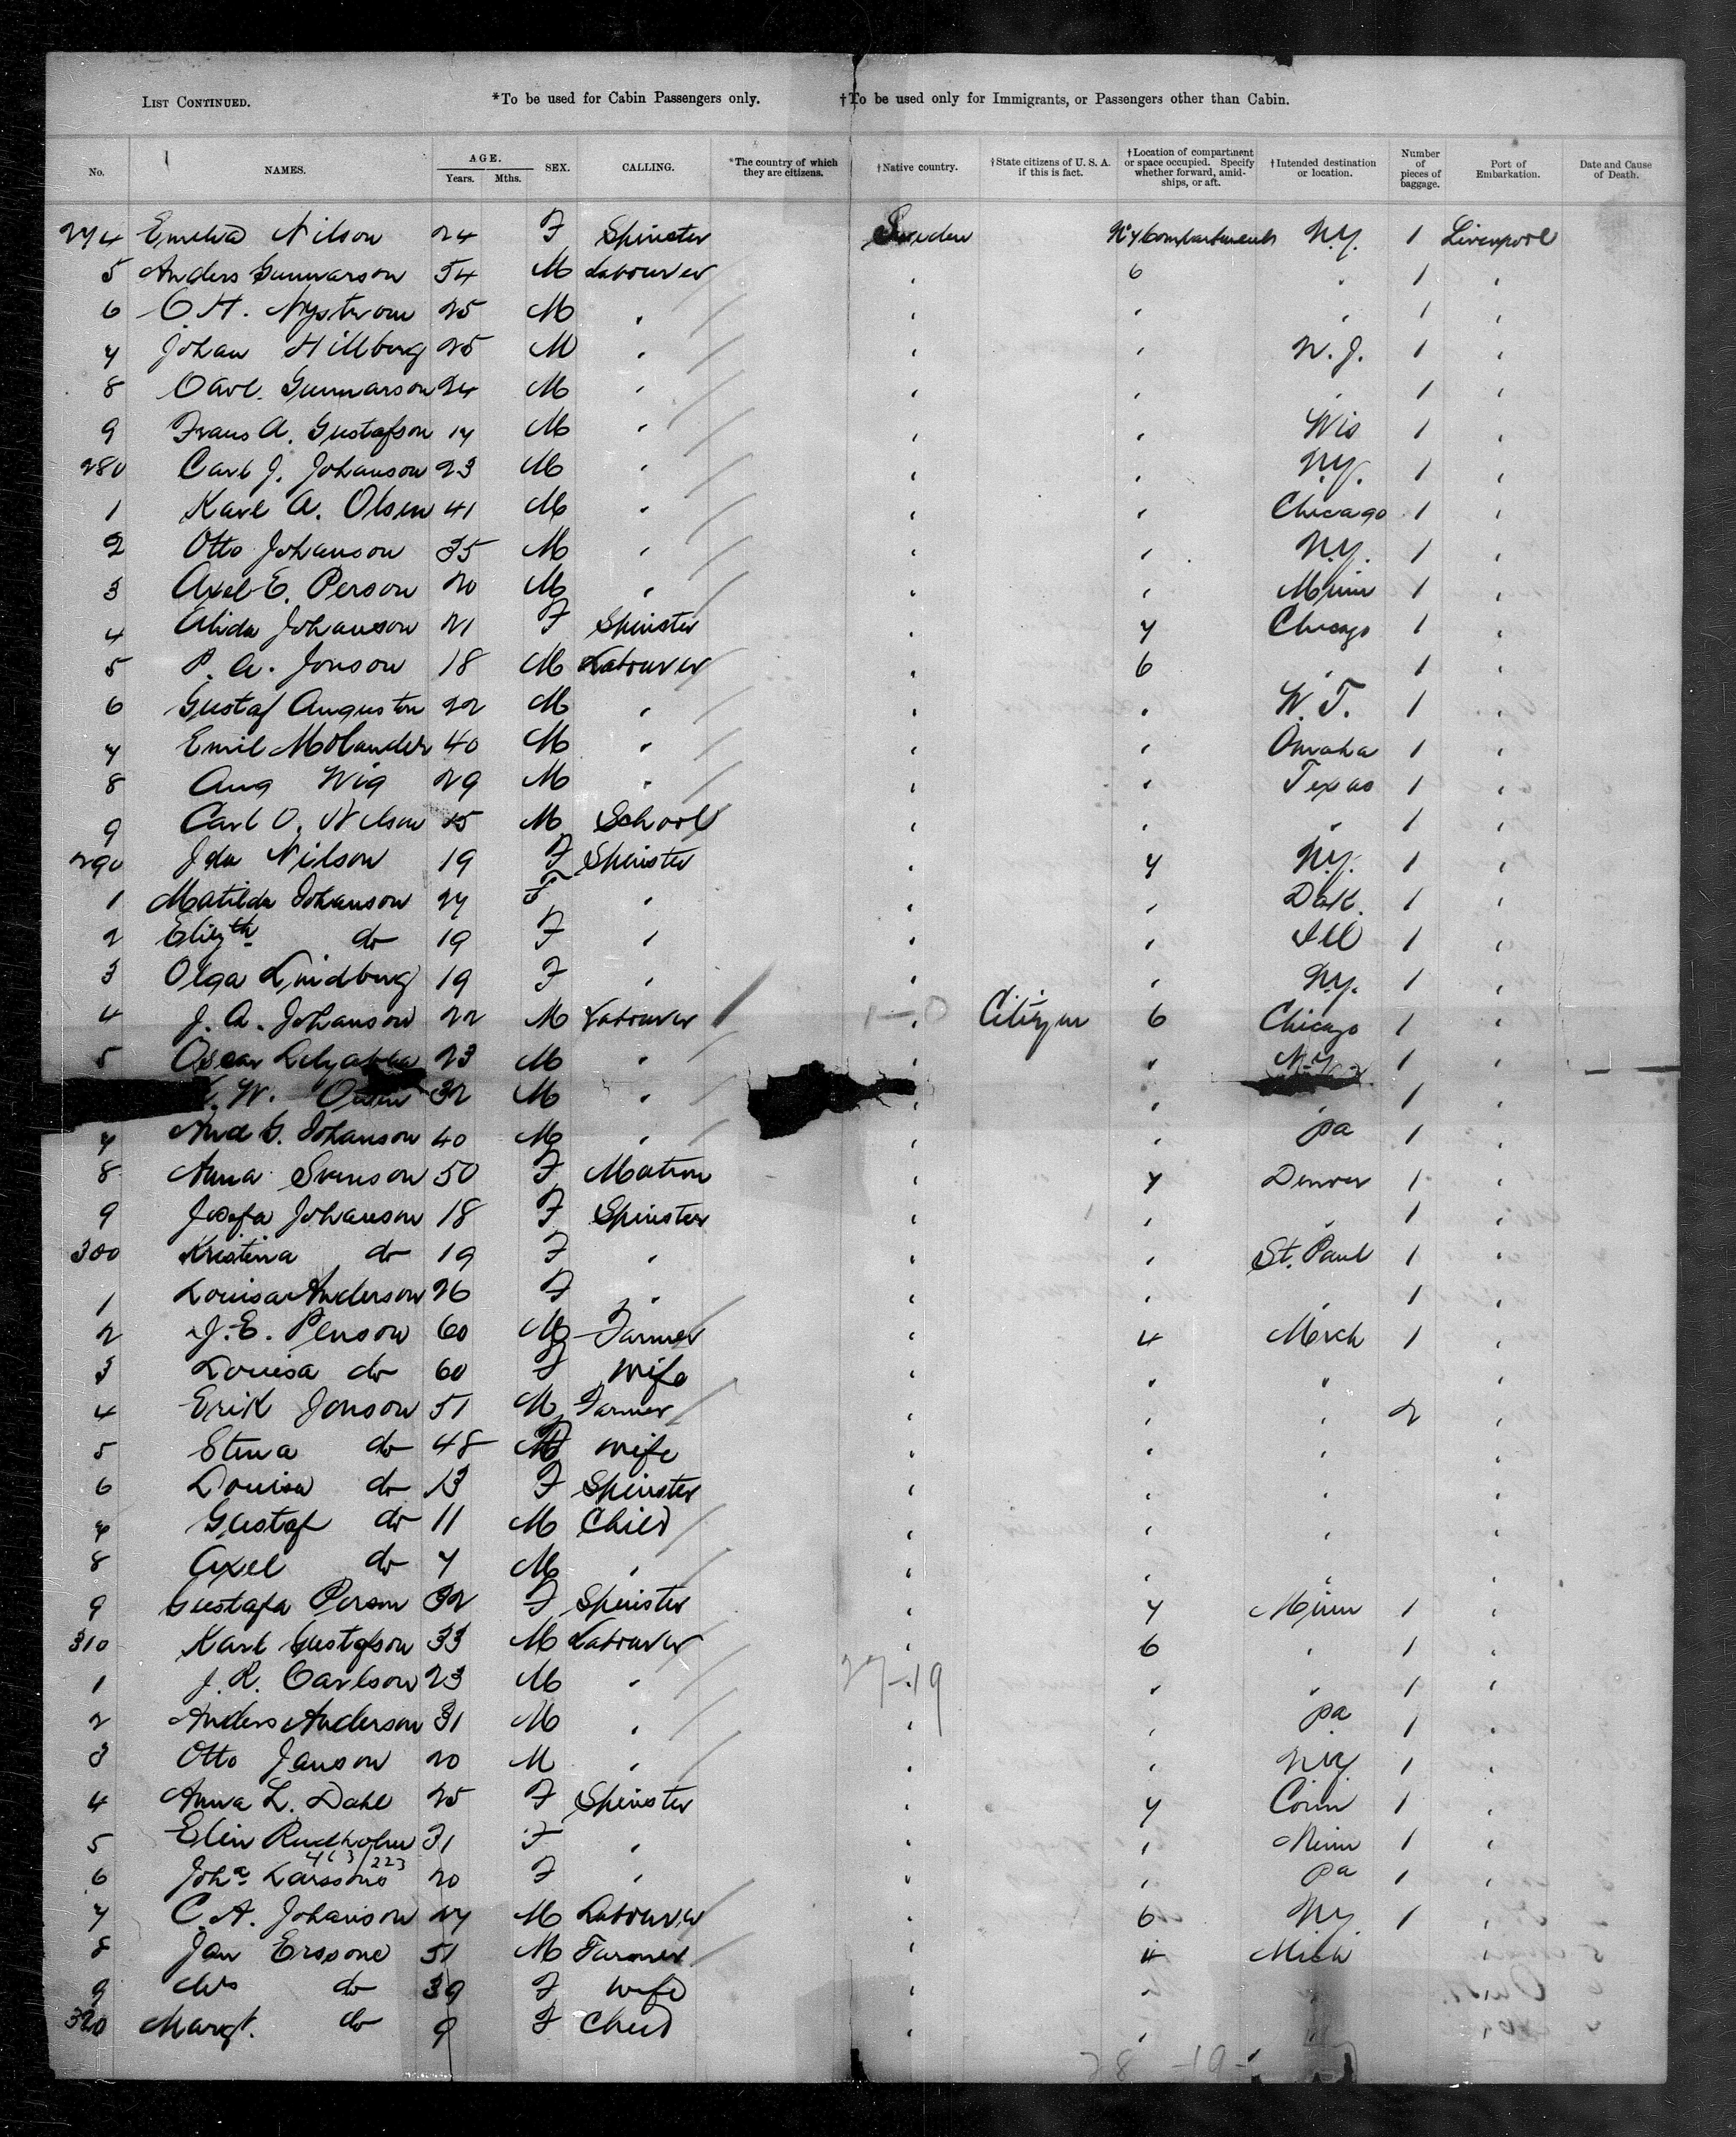 LIST CONTINUED. *To be used for Cabin Passengers only. †To be used only for Immigrants, or Passengers other than Cabin.
No. NAMES. AGE. Years. Mths. SEX. CALLING. *The country of which they are citizens. †Native country. †State citizens of U. S. A. if this is fact. †Location of compartment or space occupied. Specify whether forward, amidships, or aft. †Intended destination or location. Number of pieces of baggage. Port of Embarkation. Date and Cause of Death.
274 Emelia Nilson 24 F Spinster Sweden No 7 Compartment N.Y. 1 Liverpool
5 Anders Gunnarson 54 M Labourer " 6 " 1 "
6 C.H. Nystrom 25 M " " " " 1 "
7 Johan Hillberg 25 M " " " N.J. 1 "
8 Carl Gunnarson 24 M " " " " 1 "
9 Frans A. Gustafson 17 M " " " Wis 1 "
280 Carl J. Johanson 23 M " " " N.Y. 1 "
1 Karl A. Olsen 41 M " " " Chicago 1 "
2 Otto Johanson 35 M " " " N.Y. 1 "
3 Axel E. Person 20 M " " " Minn 1 "
4 Alida Johanson 21 F Spinster " 7 Chicago 1 "
5 P. A. Jonson 18 M Labourer " 6 " 1 "
6 Gustaf Auguston 22 M " " " W.T. 1 "
7 Emil Molander 40 M " " " Omaha 1 "
8 Aug Wig 29 M " " " Texas 1 "
9 Carl O. Nilson 15 M School " " " 1 "
290 Ida Nilson 19 F Spinster " 7 N.Y. 1 "
1 Matilda Johanson 27 F " " " Dak. 1 "
2 Elizth do 19 F " " " Ill 1 "
3 Olga Lindberg 19 F " " " N.Y. 1 "
4 J. A. Johanson 22 M Labourer 1-0 " Citizen 6 Chicago 1 "
5 Oscar 23 M " " " N.Y. 1 "
W. 32 M " " " " 1 "
7 And G. Johanson 40 M " " " pa 1 "
8 Anna Svenson 50 F Matron " 7 Denver 1 "
9 Josefa Johanson 18 F Spinster " " " 1 "
300 Kristina do 19 F " " " St. Paul 1 "
1 Louisa Anderson 26 F " " " " 1 "
2 J. E. Person 60 M Farmer " 4 Mich 1 "
3 Louisa do 60 F wife " " " "
4 Erik Jonson 51 M Farmer " " " 2 "
5 Stina do 48 F wife " " " "
6 Louisa do 13 F Spinster " " " "
7 Gustaf do 11 M Child " " " "
8 Axel do 7 M " " " " "
9 Gustafa Person 32 F Spinster " 7 Minn 1 "
310 Karl Gustafson 33 M Labourer " 6 " 1 "
1 J. R. Carlson 23 M " 27-19 " " " 1 "
2 Anders Anderson 31 M " " " pa 1 "
3 Otto Janson 20 M " " " N.Y. 1 "
4 Anna L. Dahl 25 F Spinster " 7 Conn 1 "
5 Elin Rudholm 31 F " " " Minn 1 "
463/223
6 Joha Larssone 20 F " " " pa 1 "
7 C. A. Johanson 27 M Labourer " 6 N.Y. 1 "
8 Jan Erssone 51 M Farmer " 4 Mich "
9 Mrs do 39 F wife " " "
320 Margt. do 9 F Child " " " "
28 -19-